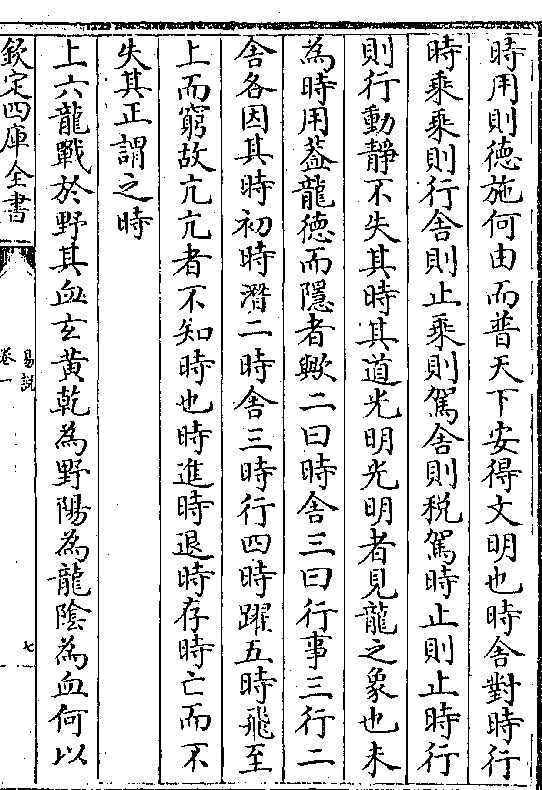 時用則徳施何由而普天下安得文明也時舍對時行
時乘乘則行舍則止乘則駕舍則税駕時止則止時行
則行動靜不失其時其道光明光明者見龍之象也未
為時用葢龍徳而隱者歟二曰時舍三曰行事三行二
舍各因其時初時潛二時舍三時行四時躍五時飛至
上而窮故亢亢者不知時也時進時退時存時亡而不
失其正謂之時
上六龍戰於野其血玄黄乾為野陽為龍陰為血何以
欽定四庫全書
易說
卷一
七